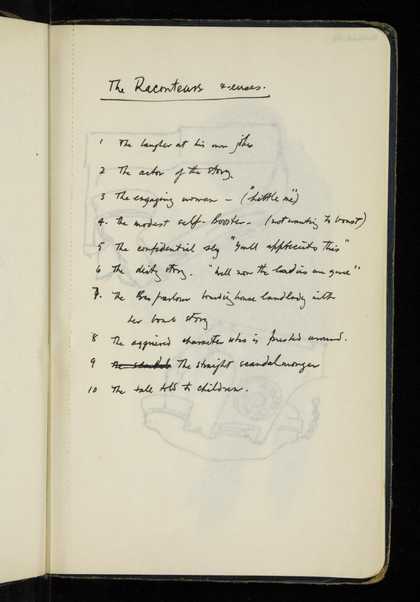 The Raconteurs & -euses.
1 The laugher at his own jokes
2 The actor of the story.
3 The engaging woman - ("Little me")
4. The modest self-Booster - (not wanting to boast)
5 The confidential sly "You'll appreciate this"
6 The dirty story. "Well now the ladies are gone"
7. The Bar parlour boarding house landlady with
her bomb story
8 The acquired character who is funted around.
9 The straight scandalmonger
10 The tale told to children.